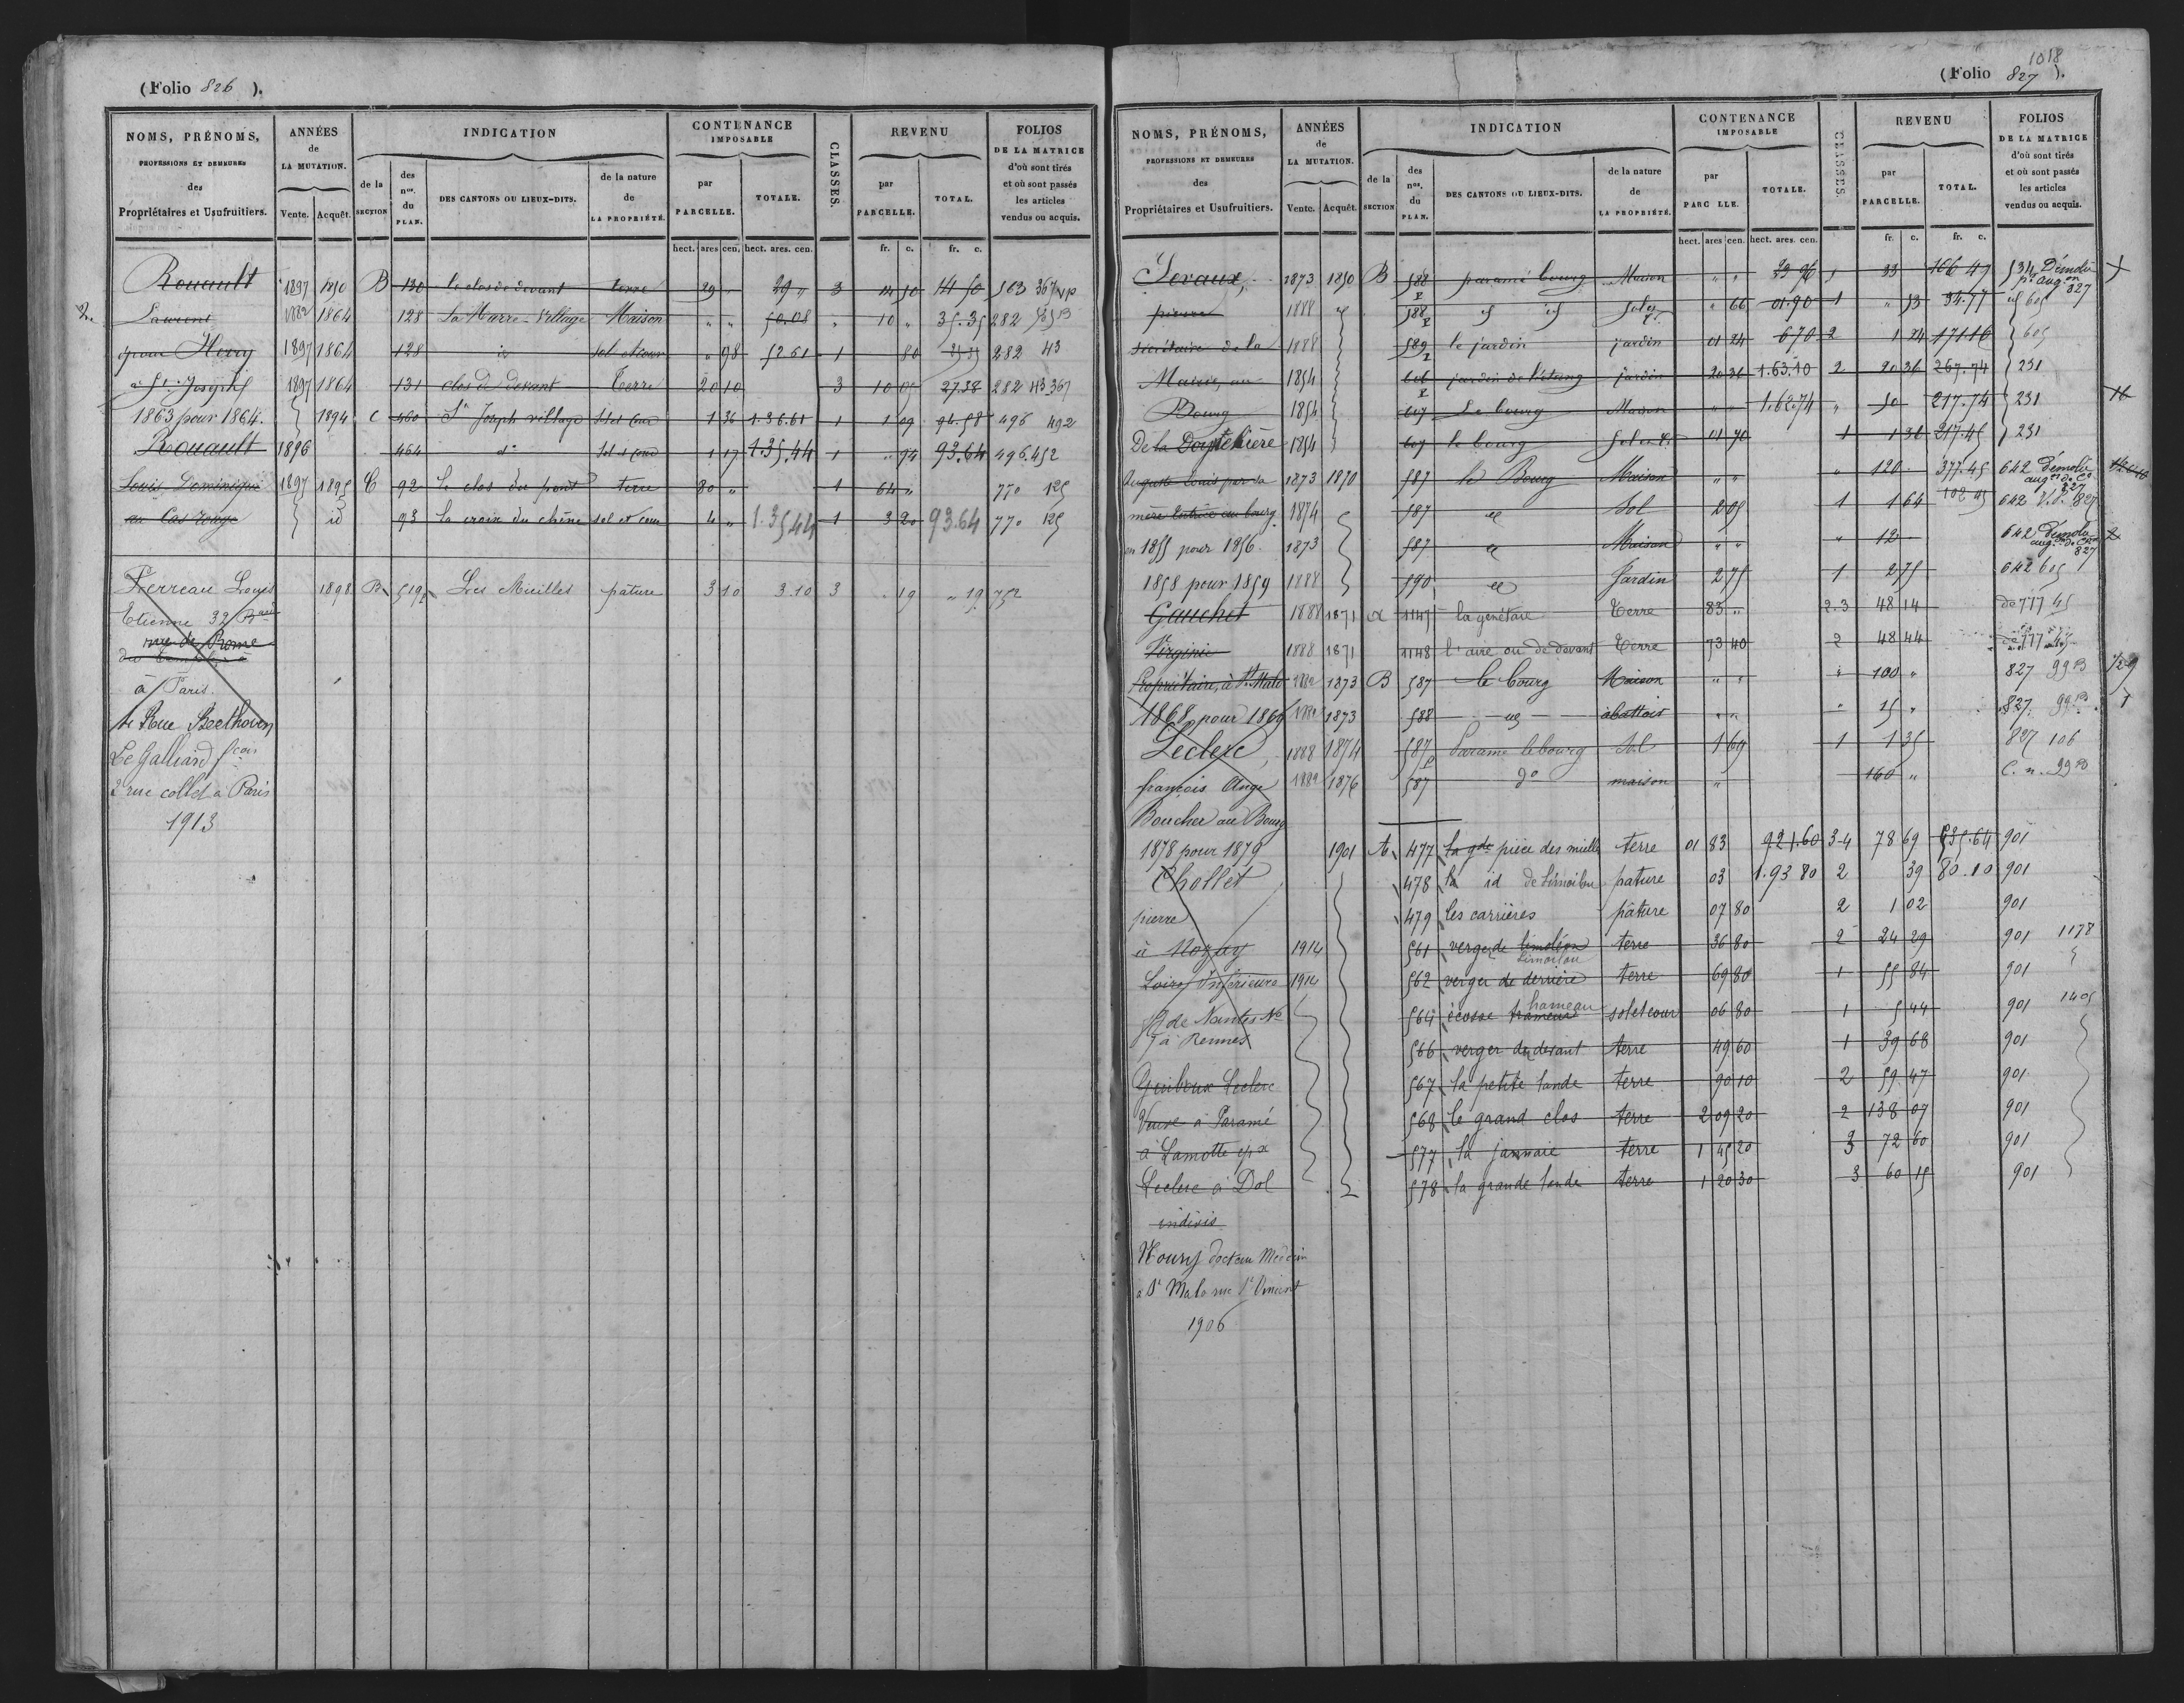 (Folio 826 ).
NOMS, PRÉNOMS, PROFESSIONS ET DEMEURES des Propriétaires et Usufruitiers.
ANNÉES de LA MUTATION. Vente. Acquêt.
INDICATION de la SECTION des nos. du PLAN. DES CANTONS OU LIEUX-DITS. de la nature de LA PROPRIÉTÉ.
CONTENANCE IMPOSABLE par PARCELLE. TOTALE.
CLASSES.
REVENU par PARCELLE. TOTAL.
FOLIOS DE LA MATRICE d'où sont tirés et où sont passés les articles vendus ou acquis.
hect. ares cen. hect. ares. cen. fr. c. fr. c.
Rouault 1897 1850 B 130 le clos de devant terre 29 " 29 " 3 14 50 14 50 563 367
Laurent 1882 1864 128 La Marre-Village Maison " " 50.08 " 10 " 35.35 282
époux Henry 1897 1864 128 id sol et cour " 98 52 61 1 80 282 43
à St. Joseph 1897 1864 131 clos de devant Terre 20 10 3 10 05 27.38 282 43.367
1863 pour 1864. 1894 C 460 St Joseph village Sol et Cour 1 36 1.36.61 1 1 09 94.58 496 492
Rouault 1896 464 do Sol et cour 1 17 1.35.44 1 " 94 93.64 496.452
Louis Dominique 1897 1895 C 92 le clos du pont terre 80 " 1 64 " 770 125
au Cas rouge id 93 la croix du chêne sol et cour 4 " 1.35 44 1 3 20 93.64 770 125
Perreau Louis 1898 B 519 Les Mieilles pâture 3 10 3.10 3 . 19 " 19 752
Etienne 32
rue de Rome
à Paris.
4 Rue Beethoven
Le Galliard fcois
2 rue collet à Paris
1913
1018
(Folio 827 ).
NOMS, PRÉNOMS, PROFESSIONS ET DEMEURES des Propriétaires et Usufruitiers.
ANNÉES de LA MUTATION. Vente. Acquêt.
INDICATION de la SECTION des nos. du PLAN. DES CANTONS OU LIEUX-DITS. de la nature de LA PROPRIÉTÉ.
CONTENANCE IMPOSABLE par PARC LLE. TOTALE.
CLASSES.
REVENU par PARCELLE. TOTAL.
FOLIOS DE LA MATRICE d'où sont tirés et où sont passés les articles vendus ou acquis.
hect. ares cen. hect. ares. cen. fr. c. fr. c.
1873 1850 B 588 paramé bourg Maison " " 1 33 166 47 534 Démolie
pierre 1888 588 " 66 01.90 1 " 53 34.77 605
secrétaire de la 1888 589 le jardin jardin 01 24 670 2 1 24 171 16 605
Mairie, au 1854 606 jardin de l'étang jardin 20 36 1.63.10 2 20 36 267.74 231
Bourg 1854 607 Le bourg Maison " " 1.62.74 " 50 217.74 231
De la 1854 607 le bourg Sol et Cr 01 70 1 1 36 217.45 231
Auguste Louis par sa 1873 1870 587 le Bourg Maison " " " 120 377.45 642 démolie
mère tutrice au bourg 1874 587 Sol 2 05 1 1 64 642 827
en 1855 pour 1856. 1873 587 Maison " " " 12 642 démolie 827
1858 pour 1859 1888 590 Jardin 2 75 1 2 75 642 605
Gauchet 1888 1871 a 1147 la genétaie Terre 83 " 2.3 48 14 de 777 45
Virginie 1888 1871 1148 l'aire ou de devant Terre 73 40 2 48 44
Propriétaire, à St Malo 1873 B 587 le bourg Maison " " " 100 " 827 99 B
1868 pour 1869 1873 588 abattoir " " " 15 " 827 99
Leclerc, 1888 1874 587 Paramé le bourg Sol 1 69 1 1 35 827 106
françois Ange 1876 587 do maison " 160 " C. n.
Boucher au Bourg
1878 pour 1879 1901 A 477 la gde pièce des mielle terre 01 83 921.60 3-4 78 69 535.64 901
Chollet 478 la id de Limoilou pature 03 1.93 80 2 39 80.10 901
pierre 479 les carrières pâture 07 80 2 1 02 901
à Nozay 1914 561 verger de limoléon Limoilou terre 36 80 2 24 29 901 1178
Loire Inférieure 1914 562 verger de derrière terre 69 80 1 55 84 901
de Nantes No 564 écosse hameau sol et cour 06 80 1 5 44 901 1405
7 à Rennes 566 verger de devant terre 49 60 1 39 68 901
Leclerc 567 la petite lande terre 90 10 2 59 47 901
Veuve à Paramé 568 le grand clos terre 2 09 20 2 138 07 901
à Lamotte 577 la jannaie terre 1 45 20 3 72 60 901
Leclerc à Dol 578 la grande lande terre 1 20 30 3 60 15 901
indivis
Houry docteur Médecin
à St Malo rue St Vincent
1906